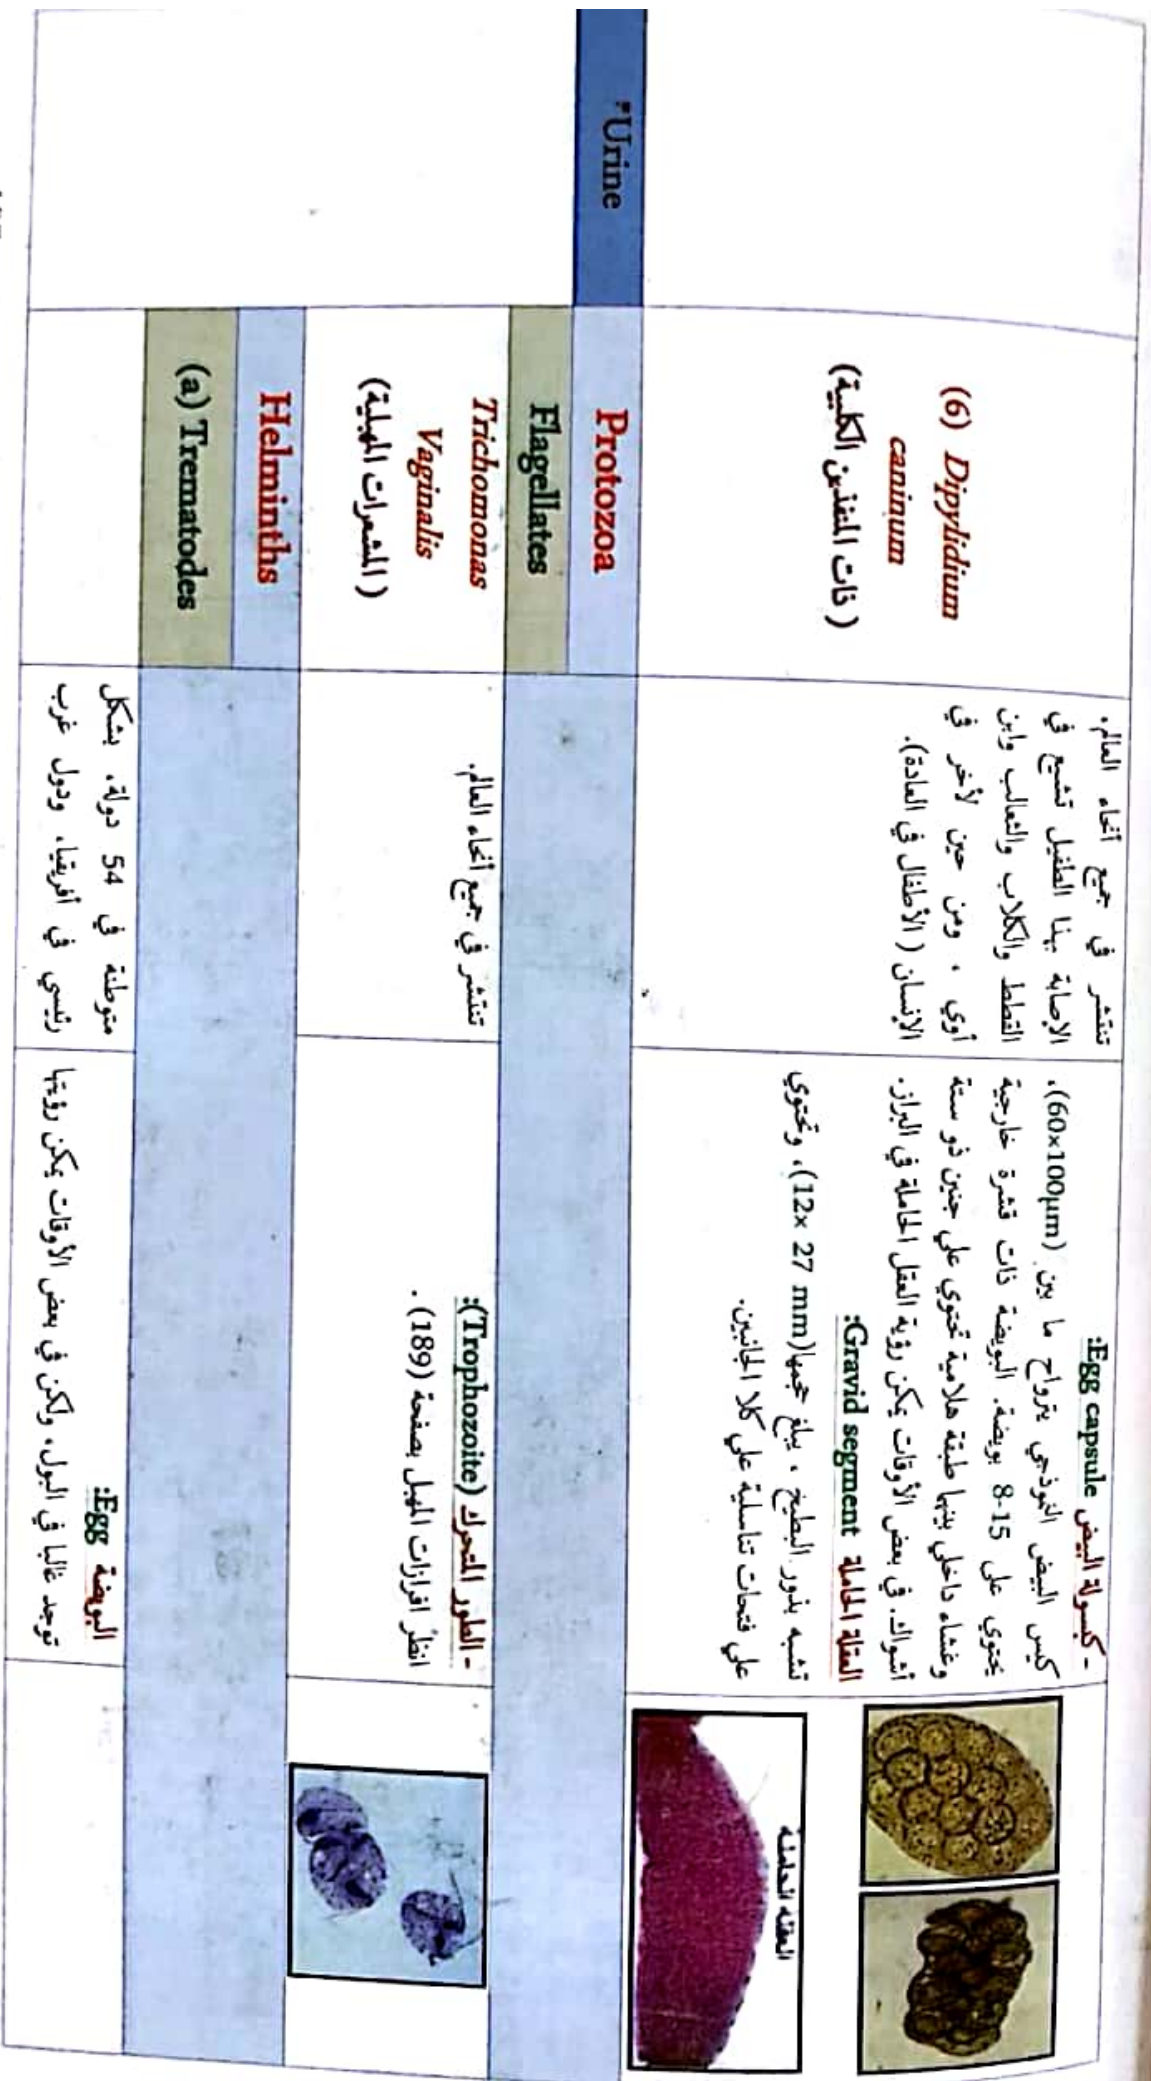 (6) Dipylidium
caninum
(ذات المنفذين الكلبية)
تنتشر في جميع أنحاء العالم.
الإصابة بهذا الطفيل تشيع في
القطط والكلاب والثعالب وابن
آوي ، ومن حين لأخر في
الإنسان (الأطفال في العادة).
- كبسولة البيض Egg capsule:
كيس البيض النموذجي يترواح ما بين (60×100µm)،
يحتوي على 8-15 بويضة. البويضة ذات قشرة خارجية
وغشاء داخلي بينها طبقة هلامية تحتوي علي جنين ذو ستة
أشواك. في بعض الأوقات يمكن رؤية العقل الحاملة في البراز.
العقلة الحاملة Gravid segment:
تشبه بذور البطيخ ، يبلغ حجمها(12× 27 mm)، وتحتوي
علي فتحات تناسلية علي كلا الجانبين.
العقله الحاملة
*Urine
Protozoa
Flagellates
Trichomonas
Vaginalis
(المشعرات المهبلية)
تنتشر في جميع أنحاء العالم.
- الطور المتحرك (Trophozoite):
انظر افرازات المهبل بصفحة (189) .
Helminths
(a) Trematodes
متوطنة في 54 دولة، بشكل
رئيسي في أفريقيا، ودول غرب
البويضة Egg:
توجد غالبا في البول، ولكن في بعض الأوقات يمكن رؤيتها